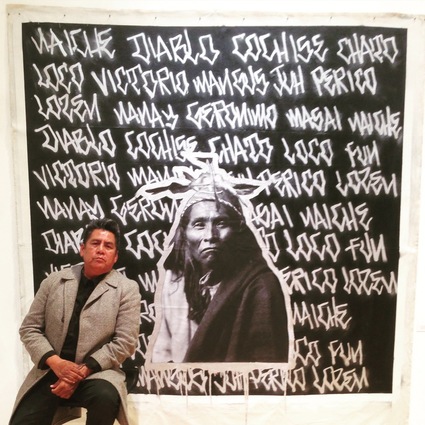 NAICHE DIABLO COCHISE CHATO
LOCO VICTORIO MANGUS JUH PERICO
LOZEN NANAY GERONIMO MASAI NAICHE
DIABLO COCHISE CHATO LOCO FUN
VICTORIO MANGUS PERICO LOZEN
NANAY GERON ASAI NAICHE
DIAB COCH O LOCO FUN
RICO LOZEN
NAICHE
CO FUN
MANGUS JUH PERICO LOZEN